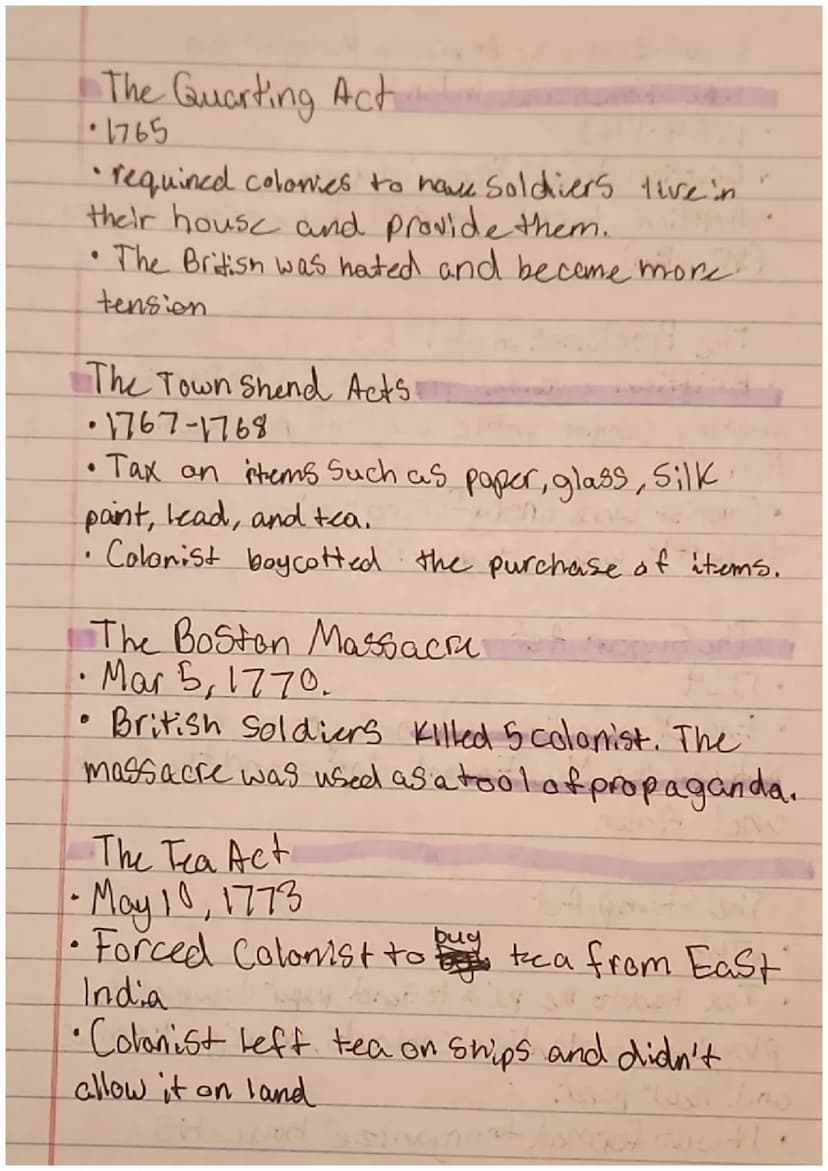 The Quarting Act
• 1765
• required colonies to have soldiers live in
their house and provide them.
• The British was hated and become more
tension
The Townshend Acts
• 1767-1768
• Tax on items such as paper, glass, silk
paint, lead, and tea.
• Colonist boycotted the purchase of items.
The Boston Massacre
• Mar 5, 1770.
• British soldiers killed 5 colonist. The
massacre was used as a tool of propaganda.
The Tea Act
• May 10, 1773
• Forced Colonist to buy tea from East
India
• Colonist left tea on ships and didn't
allow it on land